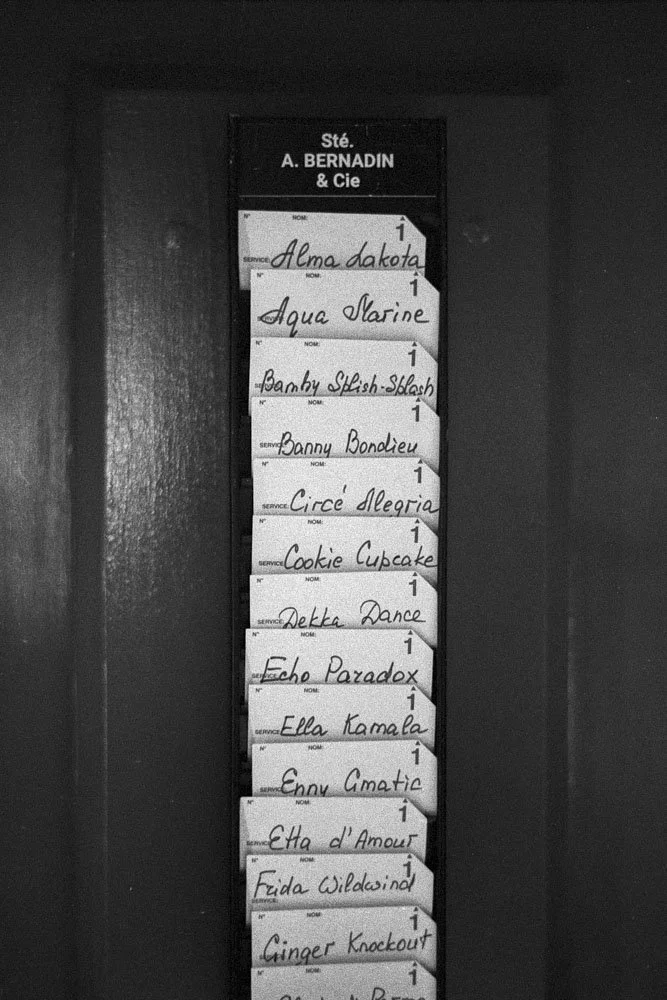 Sté.
A. BERNADIN
& Cie
N° NOM: 1
SERVICE: Alma Lakota
N° NOM: 1
Aqua Marine
1
Bamby Splish-Splash
N° NOM: 1
SERVICE: Banny Bondieu
N° NOM: 1
SERVICE: Circé Alegria
N° NOM: 1
SERVICE: Cookie Cupcake
N° NOM: 1
SERVICE: Dekka Dance
N° NOM: 1
SERVICE: Echo Paradox
N° NOM: 1
SERVICE: Ella Kamala
N° NOM: 1
SERVICE: Enny Gmatic
N° NOM: 1
SERVICE: Etta d'Amour
N° NOM: 1
Frida Wildwind
SERVICE:
N° NOM: 1
Ginger Knockout
N° NOM: 1